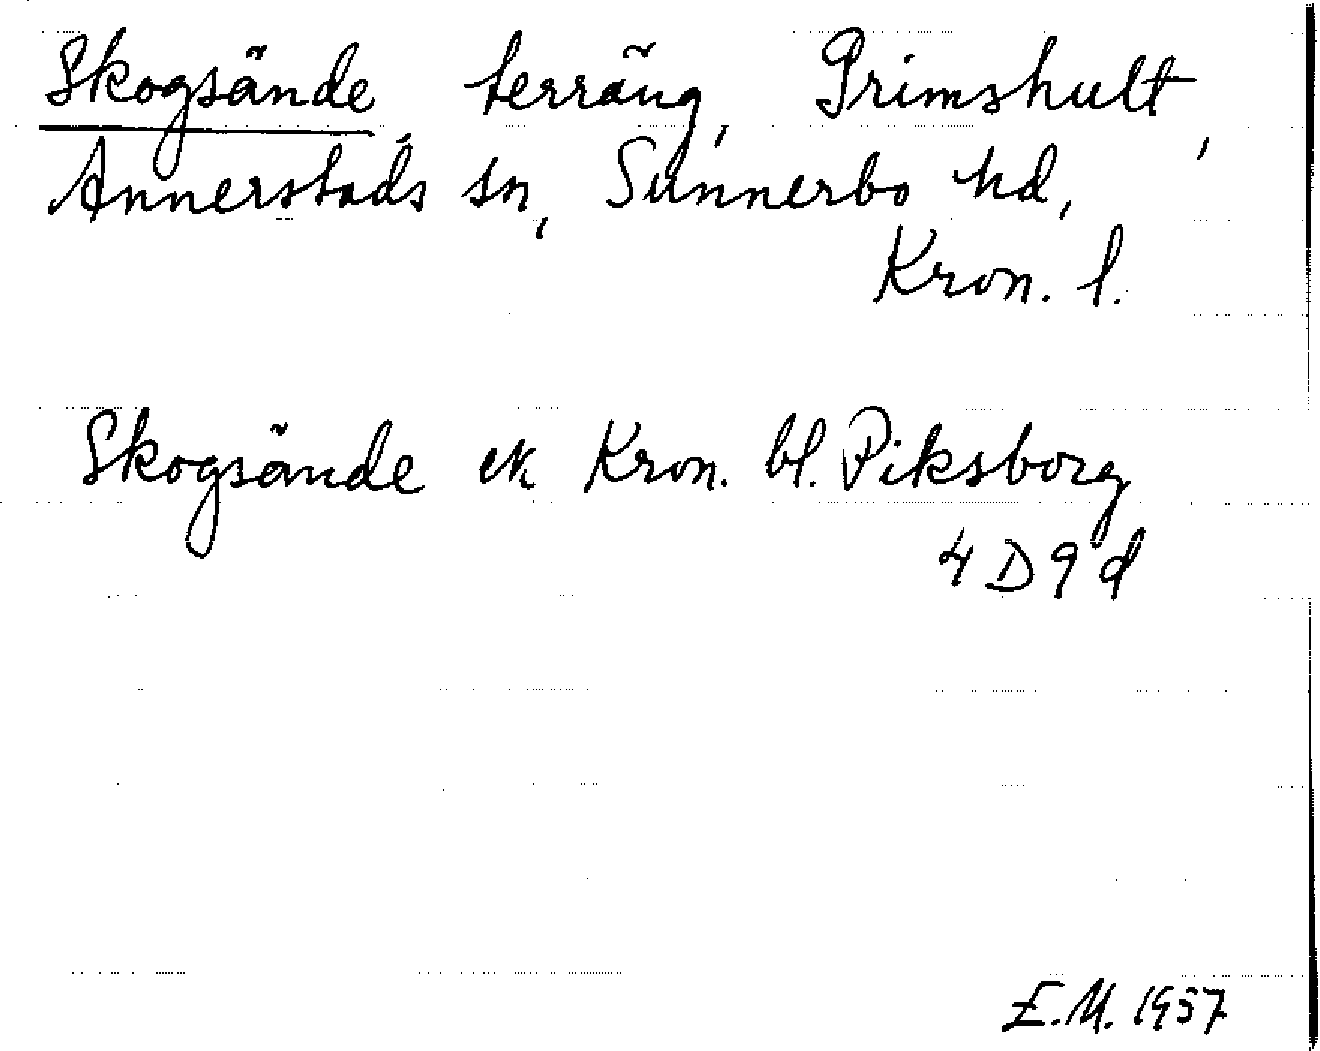 Skogsände, terräng, Grimshult,
Annerstads sn, Sunnerbo hd,
Kron. l.
Skogsände ek Kron. bl. Piksborg
4 D 9 d
E.M. 1957